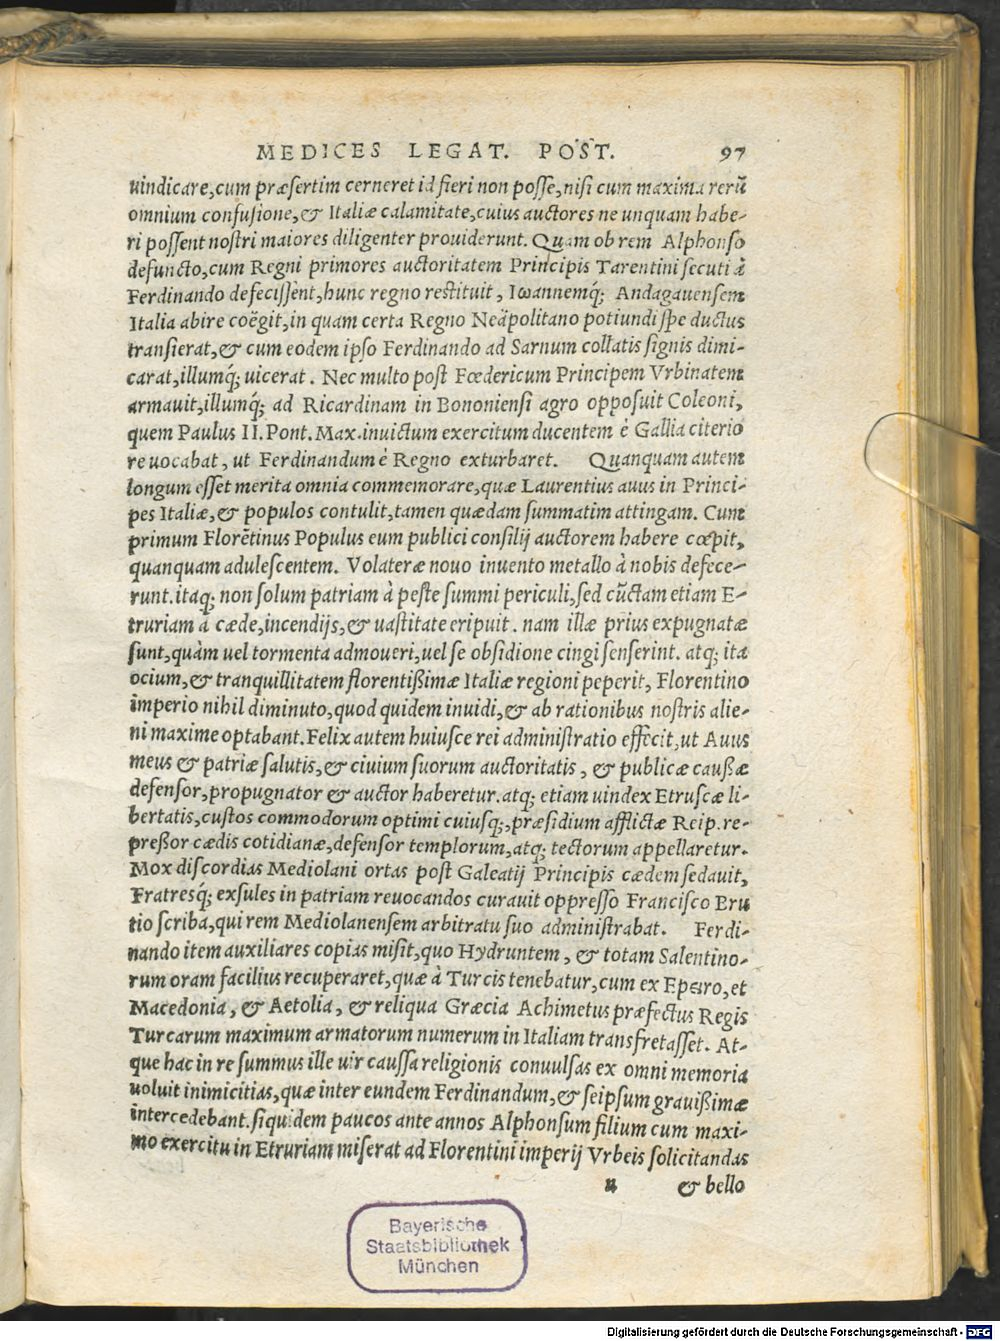 MEDICES LEGAT. POST. 97
uindicare, cum præsertim cerneret id fieri non posse, nisi cum maxima rerũ
omnium confusione, & Italiæ calamitate, cuius auctores ne unquam habe-
ri possent nostri maiores diligenter prouiderunt. Quam ob rem Alphonso
defuncto, cum Regni primores auctoritatem Principis Tarentini secuti à
Ferdinando defecissent, hunc regno restituit, Ioannemq́; Andagauensem
Italia abire coëgit, in quam certa Regno Neäpolitano potiundi spe ductus
transierat, & cum eodem ipso Ferdinando ad Sarnum collatis signis dimi-
carat, illumq́; uicerat. Nec multo post Fœdericum Principem Vrbinatem
armauit, illumq́; ad Ricardinam in Bononiensi agro opposuit Coleoni,
quem Paulus II. Pont. Max. inuictum exercitum ducentem è Gallia citerio
re uocabat, ut Ferdinandum è Regno exturbaret. Quanquam autem
longum esset merita omnia commemorare, quæ Laurentius auus in Princi-
pes Italiæ, & populos contulit, tamen quædam summatim attingam. Cum
primum Florẽtinus Populus eum publici consilij auctorem habere cœpit,
quanquam adulescentem. Volateræ nouo inuento metallo à nobis defece-
runt. itaq; non solum patriam à peste summi periculi, sed cũctam etiam E-
truriam à cæde, incendijs, & uastitate eripuit. nam illæ prius expugnatæ
sunt, quàm uel tormenta admoueri, uel se obsidione cingi senserint. atq; ita
ocium, & tranquillitatem florentißimæ Italiæ regioni peperit, Florentino
imperio nihil diminuto, quod quidem inuidi, & ab rationibus nostris alie-
ni maxime optabant. Felix autem huiusce rei administratio effecit, ut Auus
meus & patriæ salutis, & ciuium suorum auctoritatis, & publicæ caußæ
defensor, propugnator & auctor haberetur. atq; etiam uindex Etruscæ li-
bertatis, custos commodorum optimi cuiusq́;, præsidium afflictæ Reip. re-
preßor cædis cotidianæ, defensor templorum, atq; tectorum appellaretur.
Mox discordias Mediolani ortas post Galeatij Principis cædem sedauit,
Fratresq́; exsules in patriam reuocandos curauit oppresso Francisco Bru
tio scriba, qui rem Mediolanensem arbitratu suo administrabat. Ferdi-
nando item auxiliares copias misit, quo Hydruntem, & totam Salentino-
rum oram facilius recuperaret, quæ à Turcis tenebatur, cum ex Epeiro, et
Macedonia, & Aetolia, & reliqua Græcia Achimetus præfectus Regis
Turcarum maximum armatorum numerum in Italiam transfretasset. At-
que hac in re summus ille uir caussa religionis conuulsas ex omni memoria
uoluit inimicitias, quæ inter eundem Ferdinandum, & seipsum grauißimæ
intercedebant. siquidem paucos ante annos Alphonsum filium cum maxi-
mo exercitu in Etruriam miserat ad Florentini imperij Vrbeis solicitandas
u & bello
Bayerische
Staatsbibliothek
München
Digitalisierung gefördert durch die Deutsche Forschungsgemeinschaft - DFG